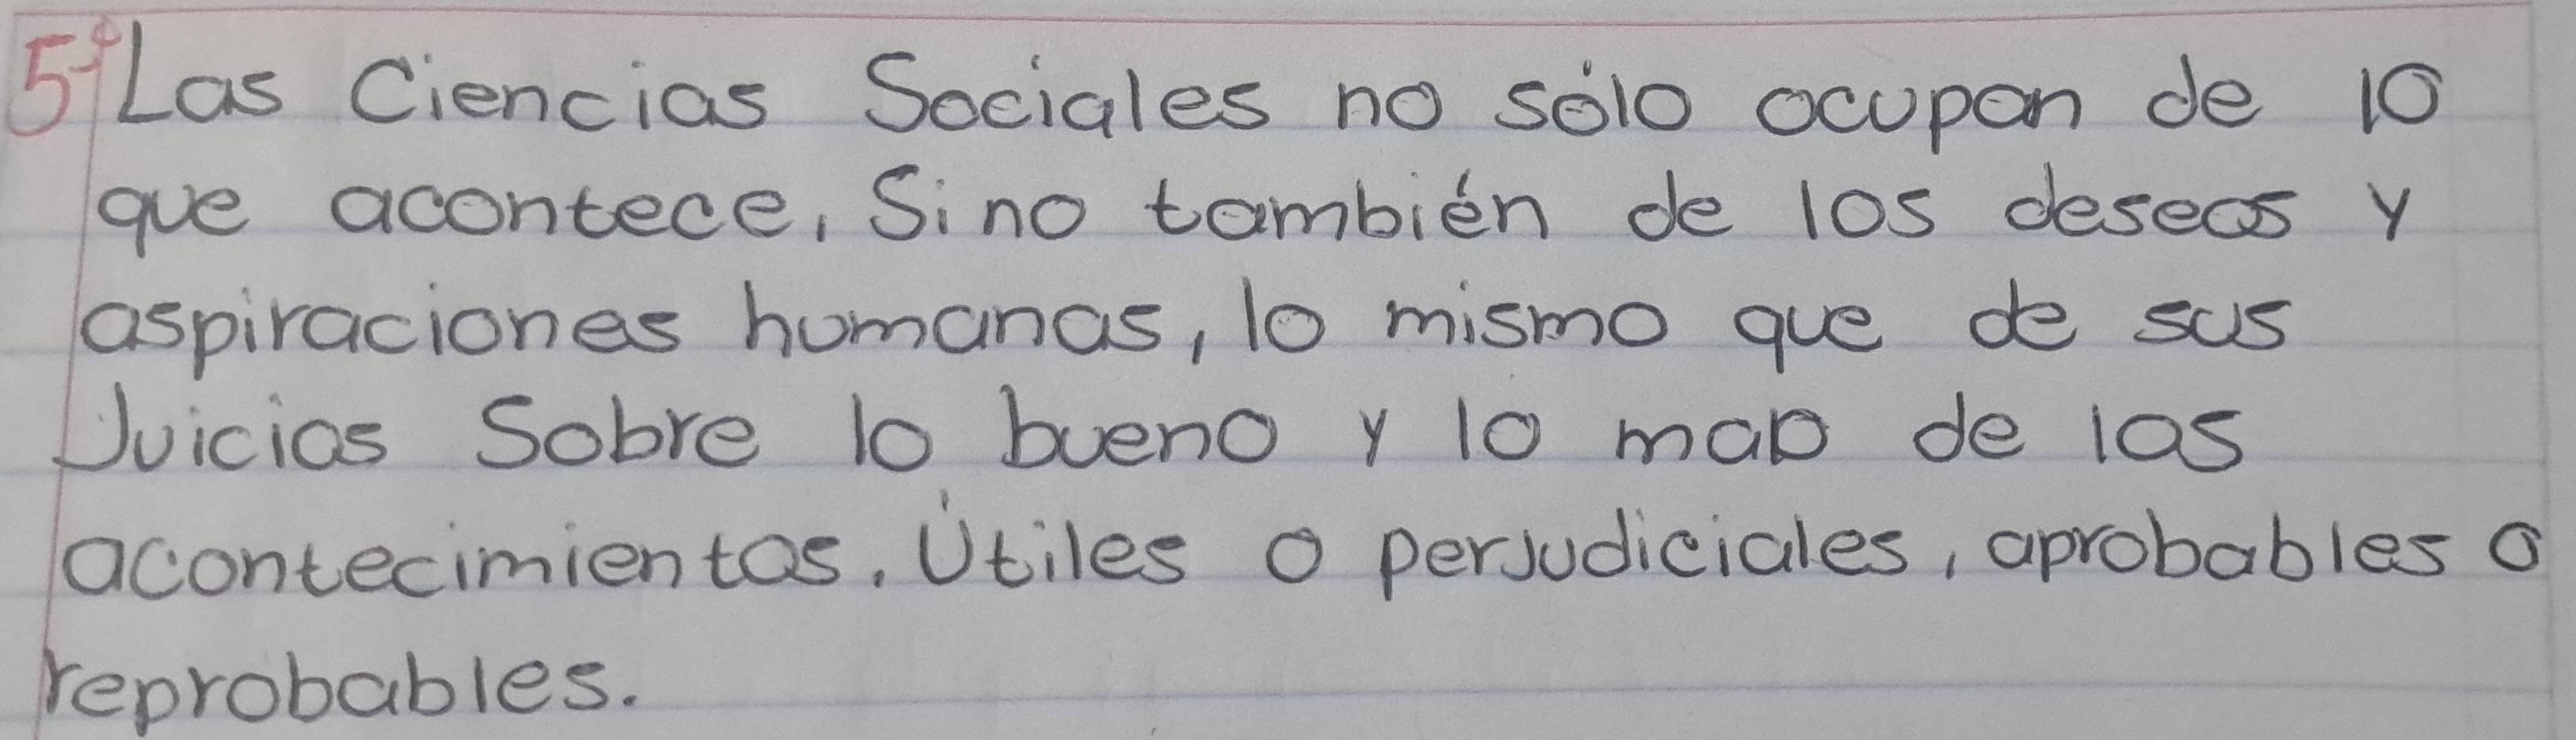 5º Las Ciencias Sociales no sólo ocupan de lo
que acontece, Sino también de los deseos y
aspiraciones humanas, lo mismo que de sus
Juicios Sobre lo bueno y lo malo de los
acontecimientos. Útiles o perjudiciales, aprobables o
reprobables.